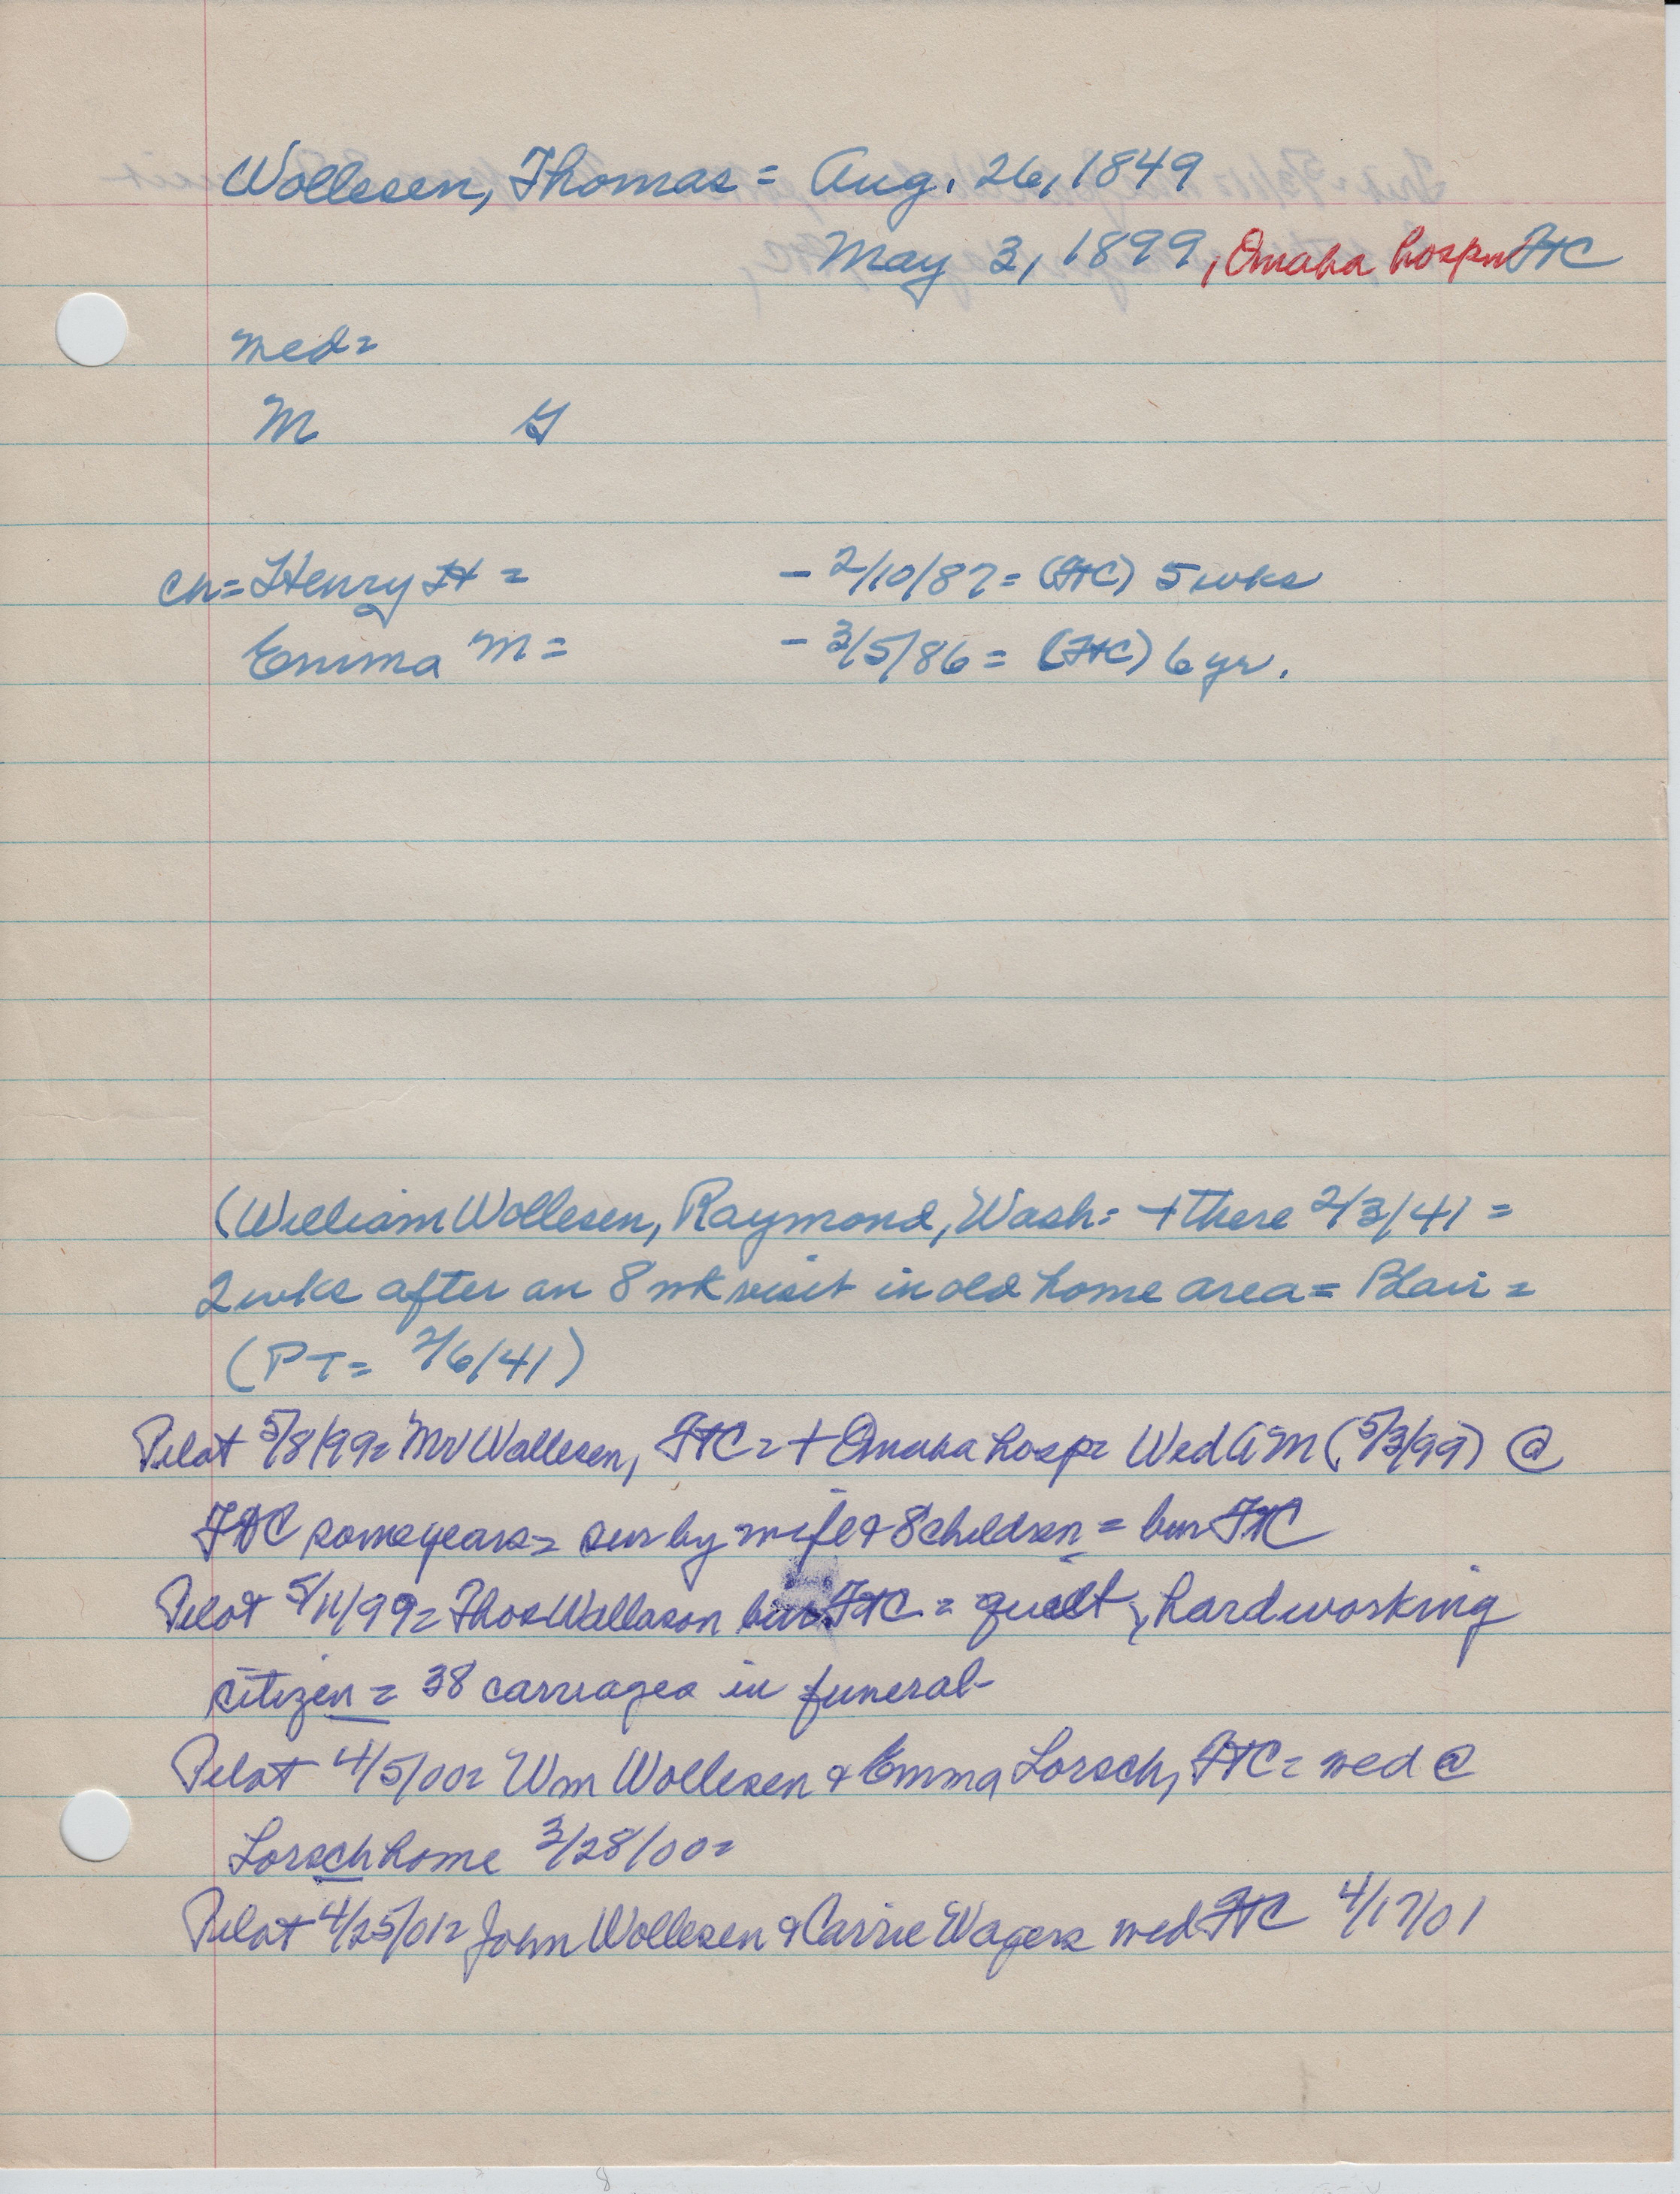 Wollesen, Thomas = Aug. 26, 1849
May 3, 1899, Omaha hosp FtC
wed=
M
ch= Henry H = - 2/10/87= (FtC) 5 wks
Emma M = - 3/5/86 = (FtC) 6 yr.
(William Wollesen, Raymond, Wash= + there 2/3/41 =
2 wks after an 8 wk visit in old home area = Blair =
(PT= 2/6/41)
Pilot 5/8/99= Mr Wollesen, FtC = + Omaha hosp= Wed AM (5/3/99) @
FtC some years= sur by wife & 8 children = bur FtC
Pilot 5/11/99= Thos Wollason bur FtC = quiet, hardworking
citizen = 38 carriages in funeral-
Pilot 4/5/00= Wm Wollesen & Emma Lorsch, FtC= wed @
Lorsch home 3/28/00=
Pilot 4/25/01= John Wollesen & Carrie Wagers wed FtC 4/17/01